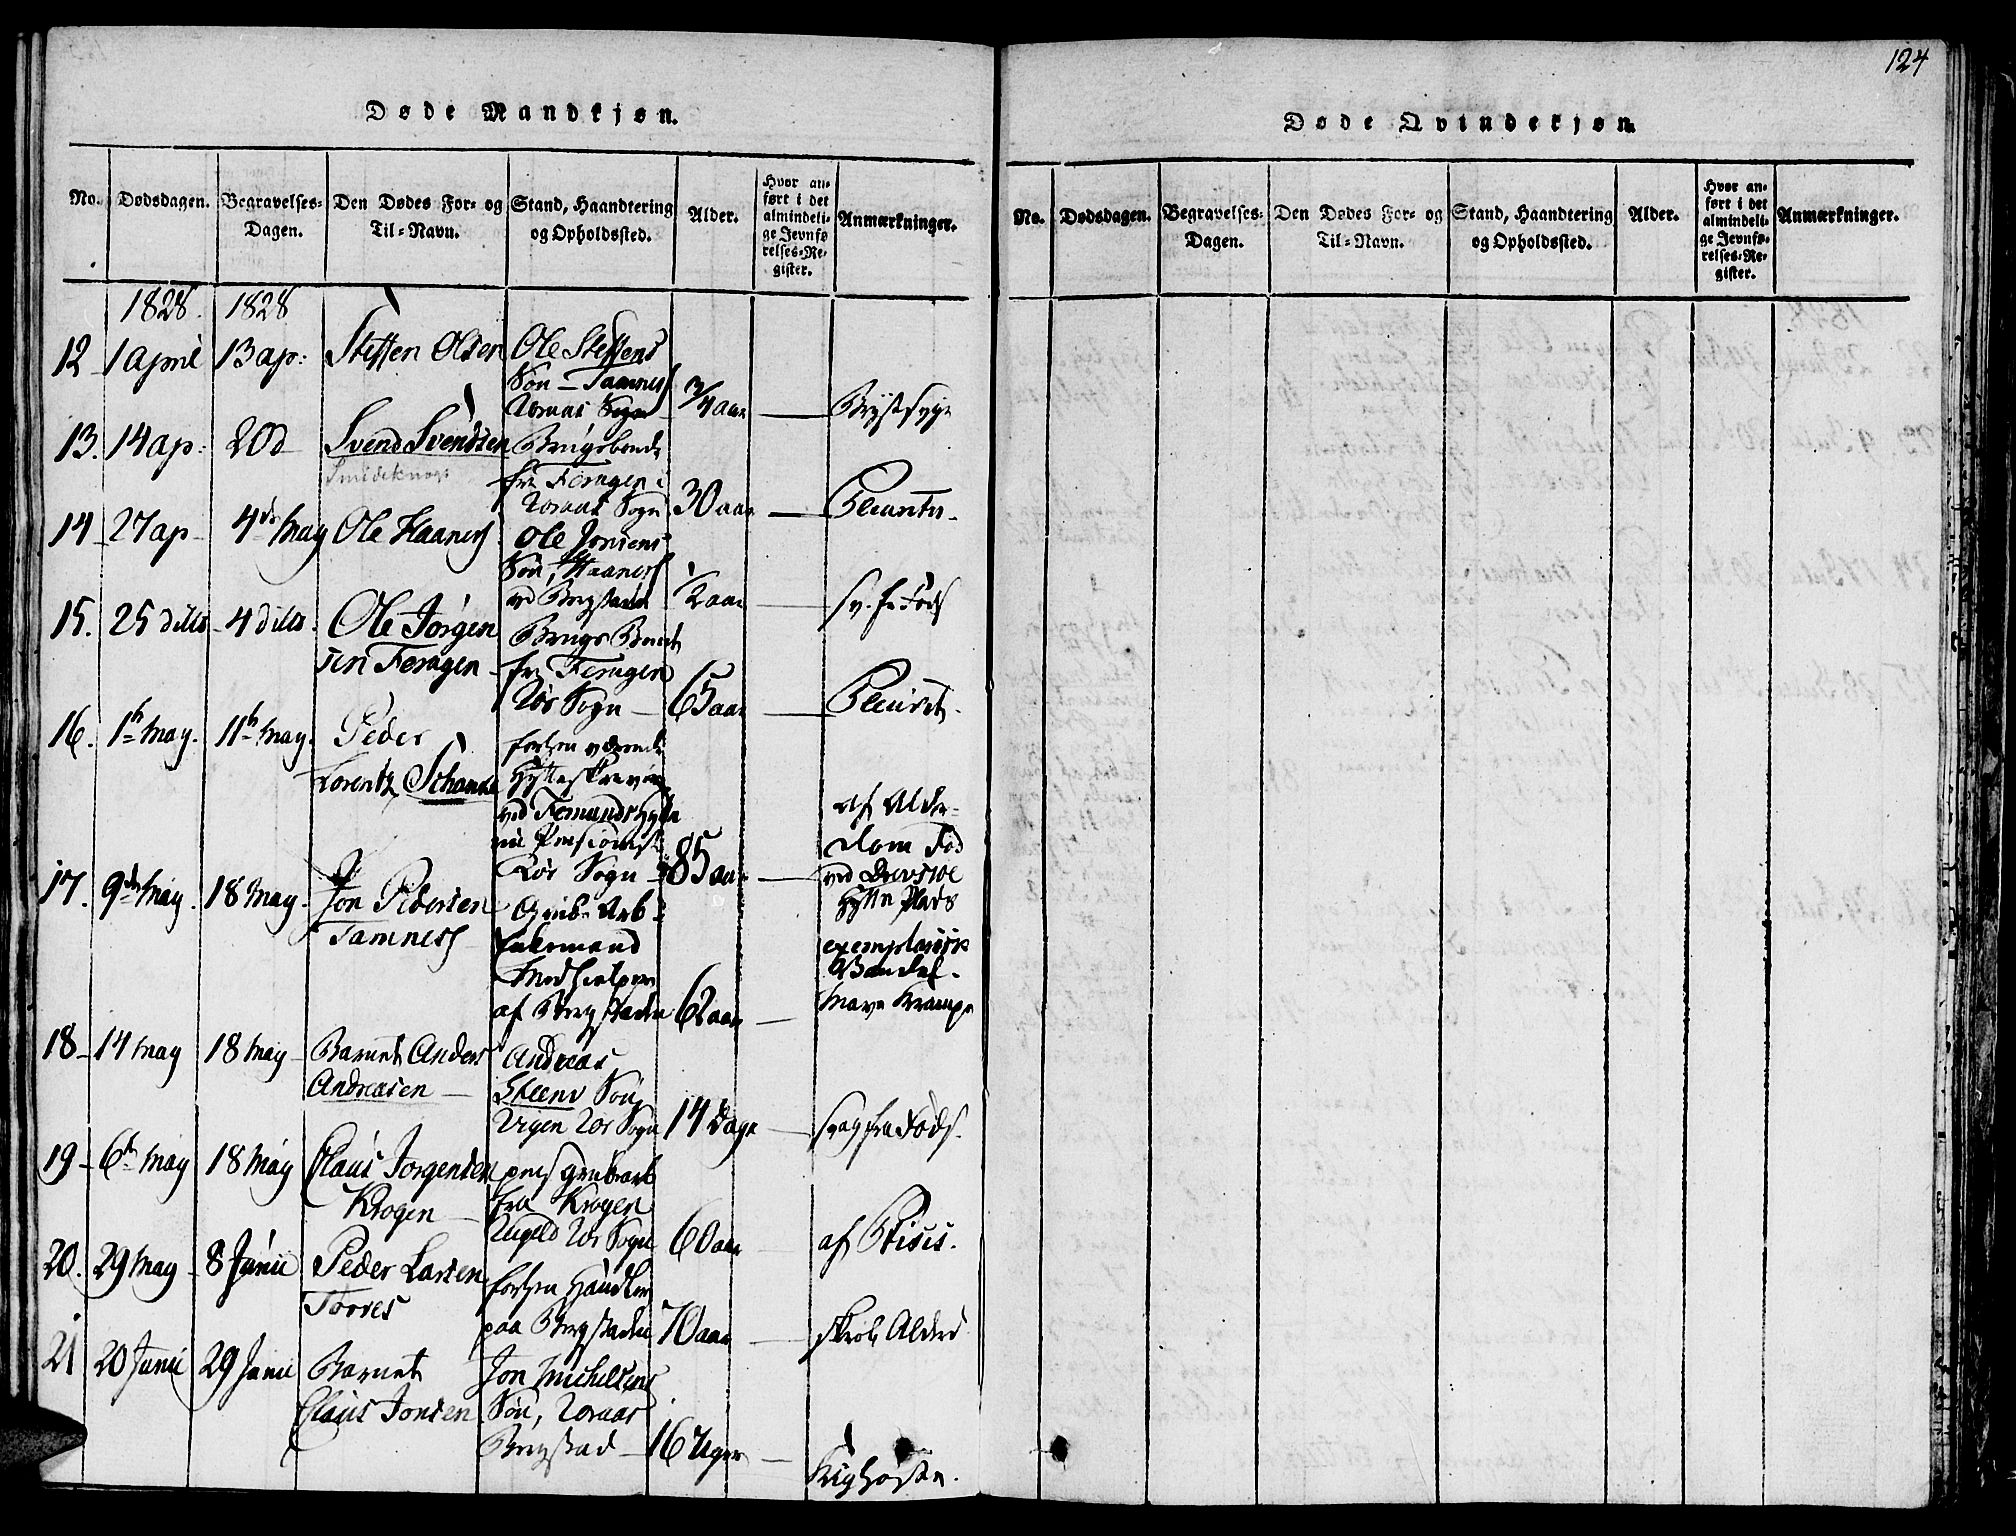 124
Døde Mandkjøn.
No. Dødsdagen. Begravelses-Dagen. Den Dødes For- og Til-Navn. Stand, Haandtering og Opholdssted. Alder. Hvor anført i det almindelige Jevnførelses-Register. Anmærkninger.
1828. 1828
12 1 April 13 ap: Steffen Olsen Ole Steffens
Søn - Tamnes
Røraas Sogn 3/4 aar Brystsyge
13. 14 ap: 20 d Svend Svendsen Brugsbonde
fra Feragen i
Røraas Sogn 30 aar
14 27 ap 4de May Ole Haanes Ole Jonsens
Søn, Haanes
ved Bergstaden 2 aar sv. fr Føds
15. 25 dito 4 dito. Ole Jørgen
sen Feragen Brugs Bonde
fra Feragen
Rør Sogn 65 aar
16. 1te May. 11te May. Peder
Lorentz Schanke forhen værende
Hytteskriver
ved Femunds Hytte
nu Pensionist
Rør Sogn 85 aar af Alder-
dom Fød
ved Drevsiøe
Hytte Plads
17. 9de May. 18 May. Jon Pedersen
Tamnes Grube Arb
Medhielper
af Bergstaden 62 aar exemplarisk
Vandel.
Mave Krampe
18 14 May 18 May Barnet Anders
Andreasen Andreas
Steens Søn
Rør Sogn 14 Dage svag fra Føds.
19 6te May 18 May Claus Jørgensen
Krogen pens grubearb
fra Krogen
Rør Sogn 60 aar af
20. 29 May 8 Junii Peder Larsen
Torres forhen Handler
paa Bergstaden 70 aar skrøb. Alderd
21 20 Junii 29 Junii Barnet
Claus Jonsen Jon Michelsens
Søn, Røraas
Bergstad 16 Uger Kighoste.
Døde Qvindekjøn.
No. Dødsdagen. Begravelses-Dagen. Den Dødes For- og Til-Navn. Stand, Haandtering og Opholdssted. Alder. Hvor anført i det almindelige Jevnførelses-Register. Anmærkninger.